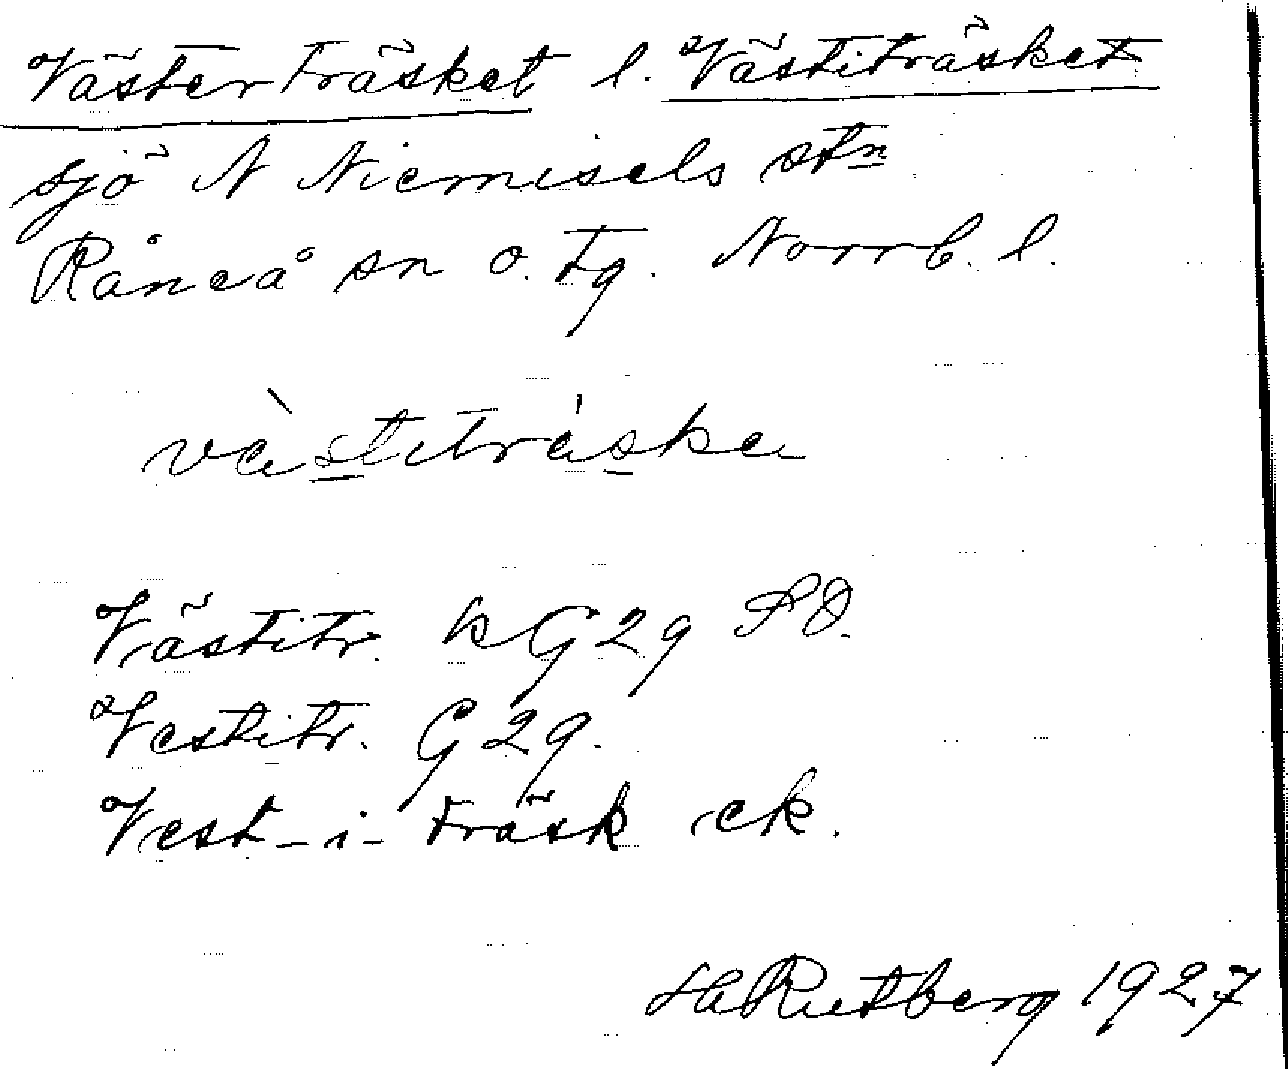 Västerträsket l. Västiträsket
sjö N Niemisels stn
Råneå sn o. tg. Norrb. l.
västiträske
Västitr. k G29 SO.
Vestitr. G 29.
Vest-i-träsk ek.
HRutberg 1927